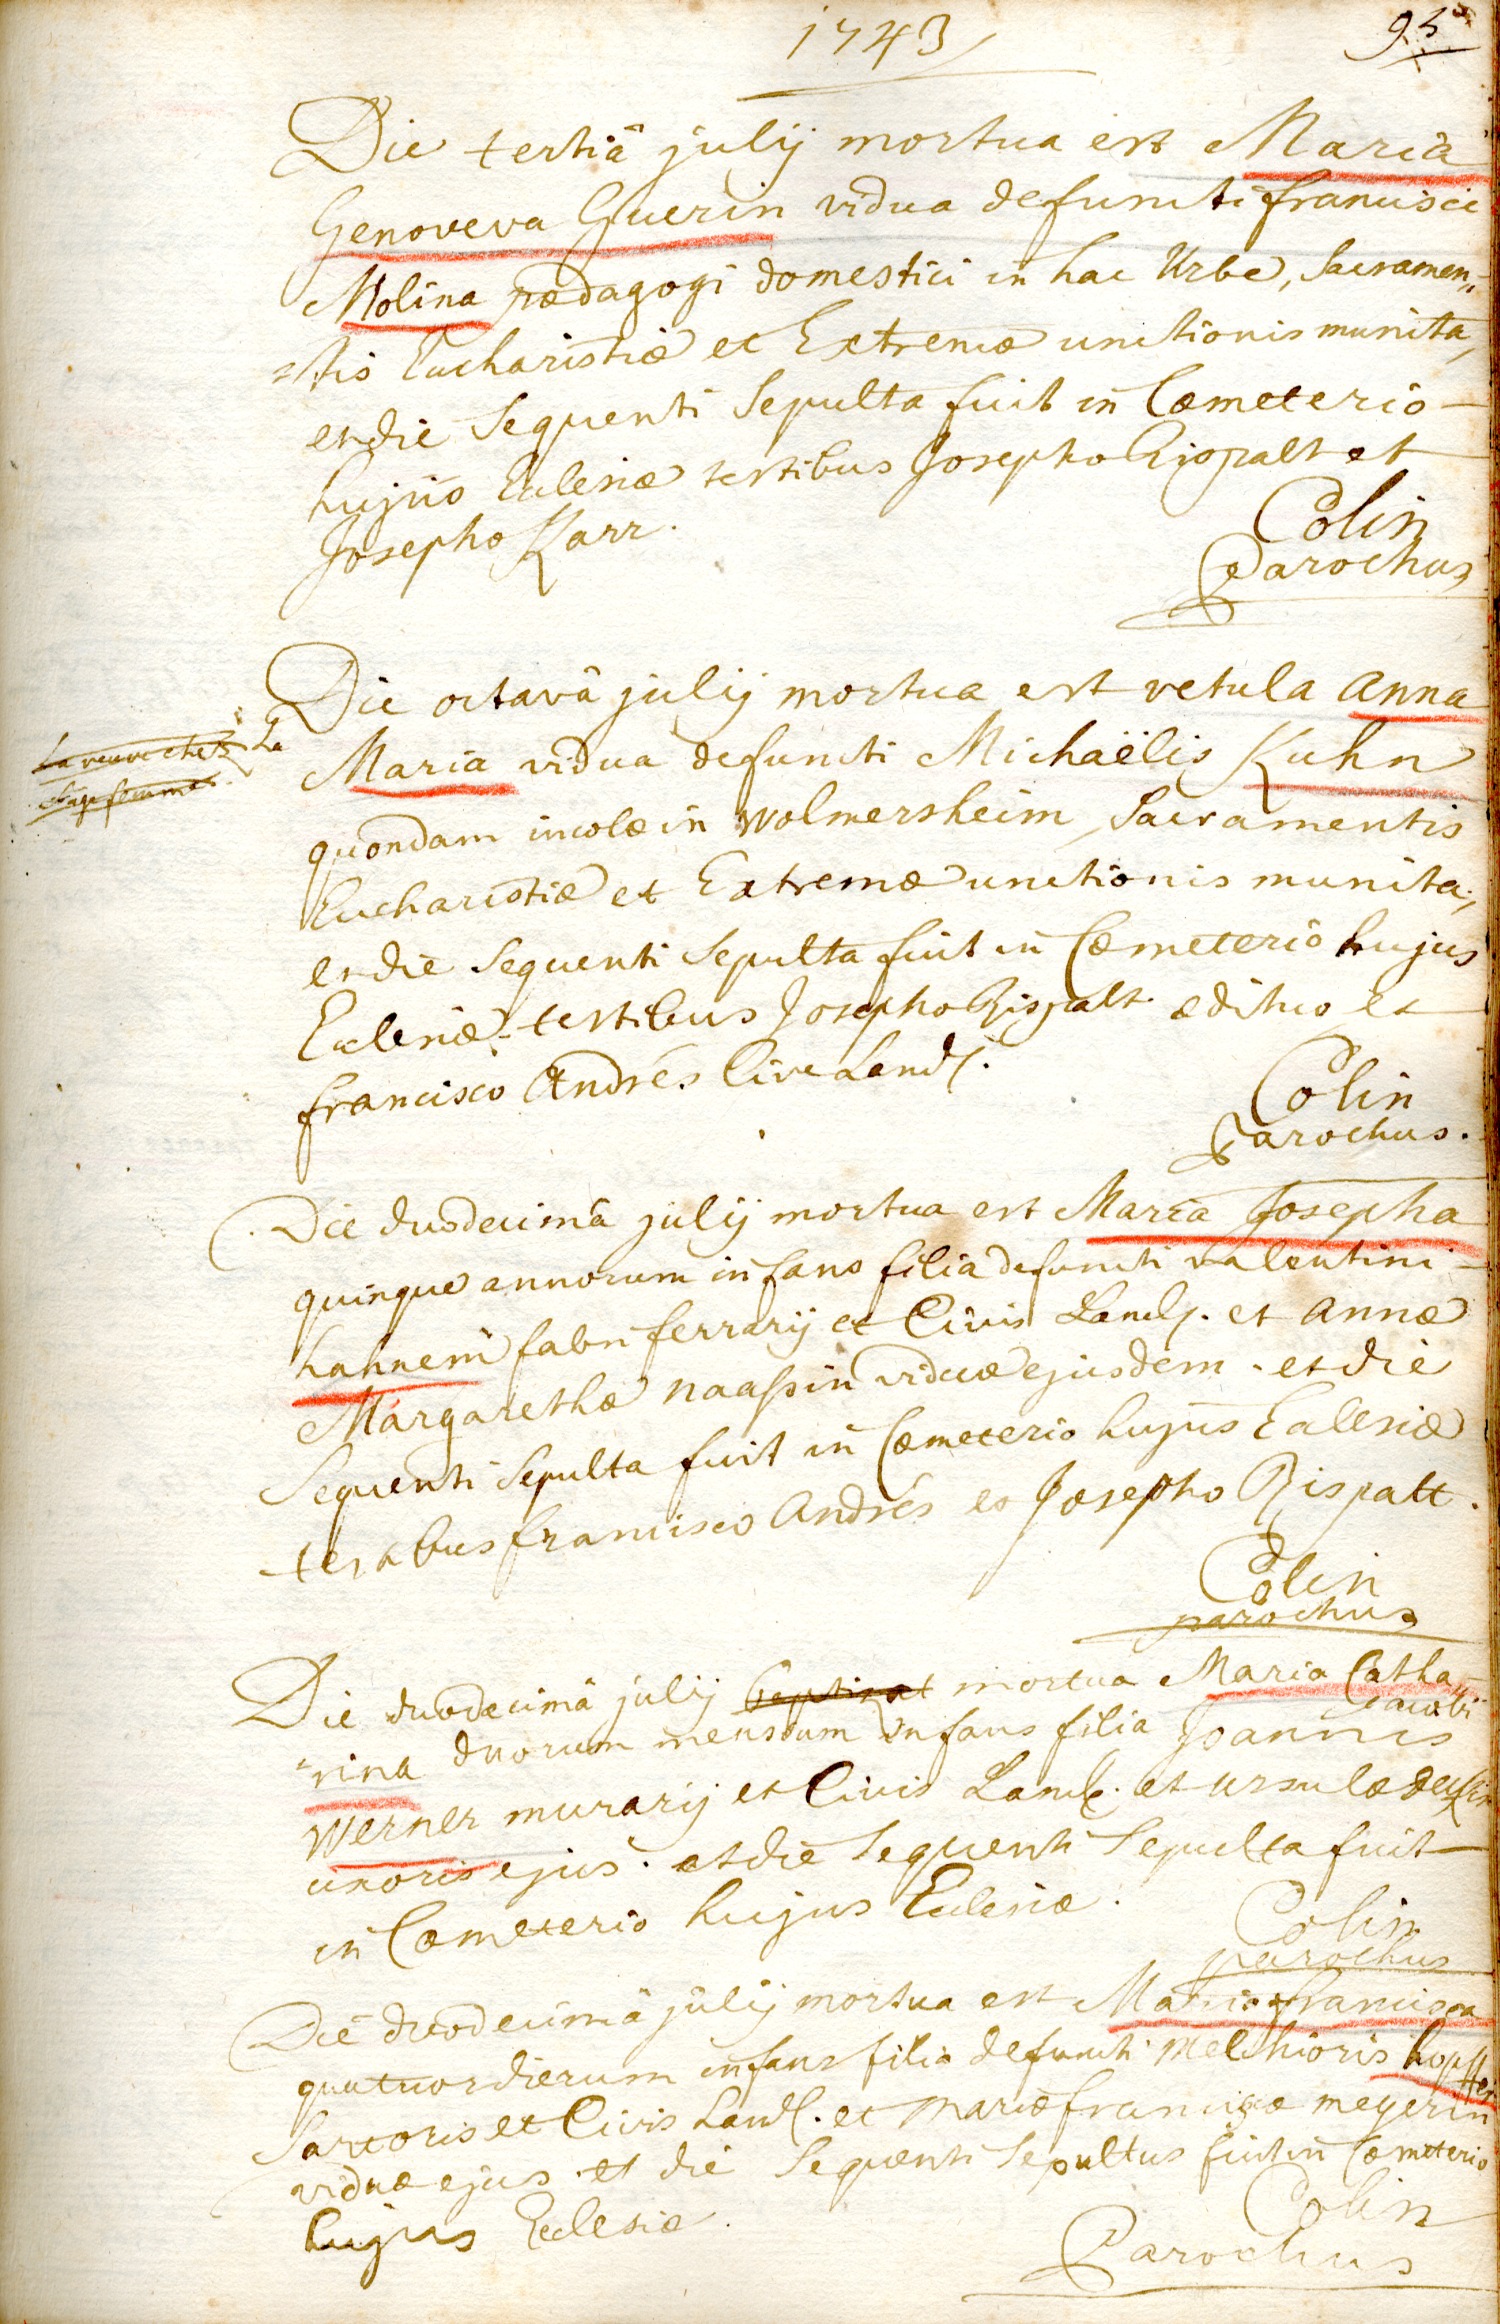 1743
95
Die tertiâ julij mortua est Maria
Genoveva Guerin vidua defuncti francisci
Molina pædagogi domestici in hac Urbe, Sacramen„
„tis Eucharistiæ et Extremæ unctionis munita,
et die Sequenti Sepulta fuit in Cœmeterio
hujus Ecclesiæ testibus Josepho Rispalt et
Josepho Karr.
Colin
Parochus
Die octavâ julij mortua est vetula Anna
La veuve chez La
Sage femme
Maria vidua defuncti Michaëlis Kuhn
quondam incolæ in Wolmersheim, Sacramentis
Eucharistiæ et Extremæ unctionis munita,
et die Sequenti Sepulta fuit in Cœmeterio hujus
Ecclesiæ testibus Josepho Rispalt ædituo et
francisco Andrés Cive Land.
Colin
Parochus.
Die duodecimâ julij mortua est Maria Josepha
quinque annorum infans filia defuncti valentini
hannem fabri ferrarij et Civis Land. et Annæ
Margarethæ naassin viduæ ejusdem. et die
Sequenti Sepulta fuit in Cœmeterio hujus Ecclesiæ
testibus francisco Andrés et Josepho Rispalt.
Colin
parochus
Die duodecimâ julij mortua Maria Catha
rina duorum mensium infans filia Joannis Jacobi
Werner murarij et Civis Land. et ursulæ
uxoris ejus. et die Sequenti Sepulta fuit
in Cœmeterio hujus Ecclesiæ.
Colin
parochus
Die duodecimâ julij mortua est Maria francisca
quatuor dierum infans filia defuncti Melchioris hopffer
Sartoris et Civis Land. et mariæ franciscæ meyerin
viduæ ejus. et die Sequenti Sepultus fuit in Cœmeterio
hujus Ecclesiæ.
Colin
Parochus